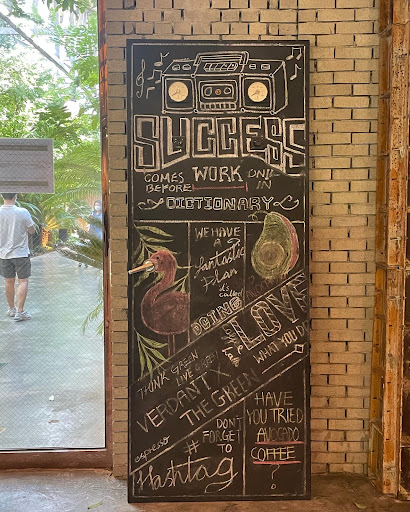 SUCCESS
COMES BEFORE WORK ONLY IN
DICTIONARY
WE HAVE
A
fantastic
Plan
it's
called
DOING
LOVE
WHAT YOU DO
THINK GREEN
LIVE GREEN
VERDANT X
THE GREEN
espresso
DON'T
FORGET
TO
#
Hashtag
HAVE
YOU TRIED
AVOCADO
COFFEE
?